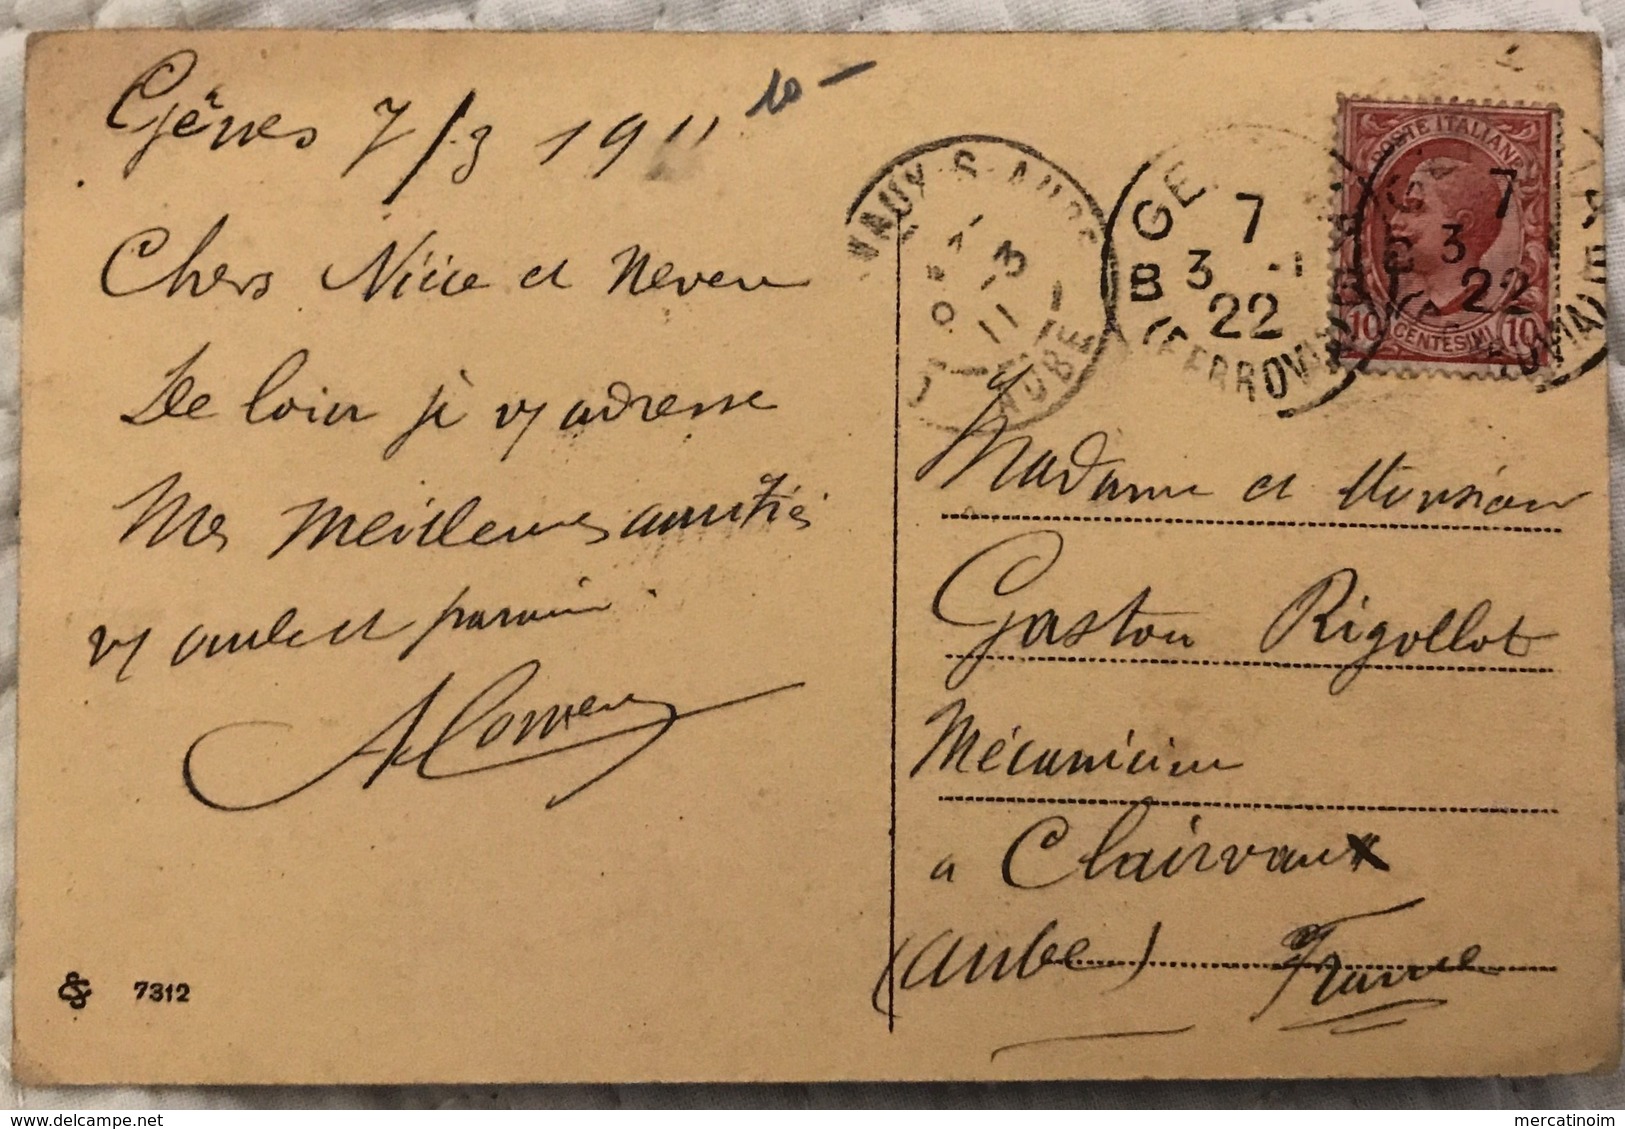 Gênes 7/3 1911
10 -
Chers Nièce et Neveu
De loin je v/ adresse
Mes meilleures amitiés
v/ oncle et parrain.
7312
VAUX-S-AUBE
-3
11
AUBE
GE
7
3 -1
22
B
(FERROVIA)
POSTE ITALIANE
7
3
22
10 CENTESIMI 10
(FERROVIA)
Madame et Monsieur
Gaston Rigollot
Mécanicien
a Clairvaux
(Aube) France
mercatinoim
Copyright 2019 - Delcampe International srl